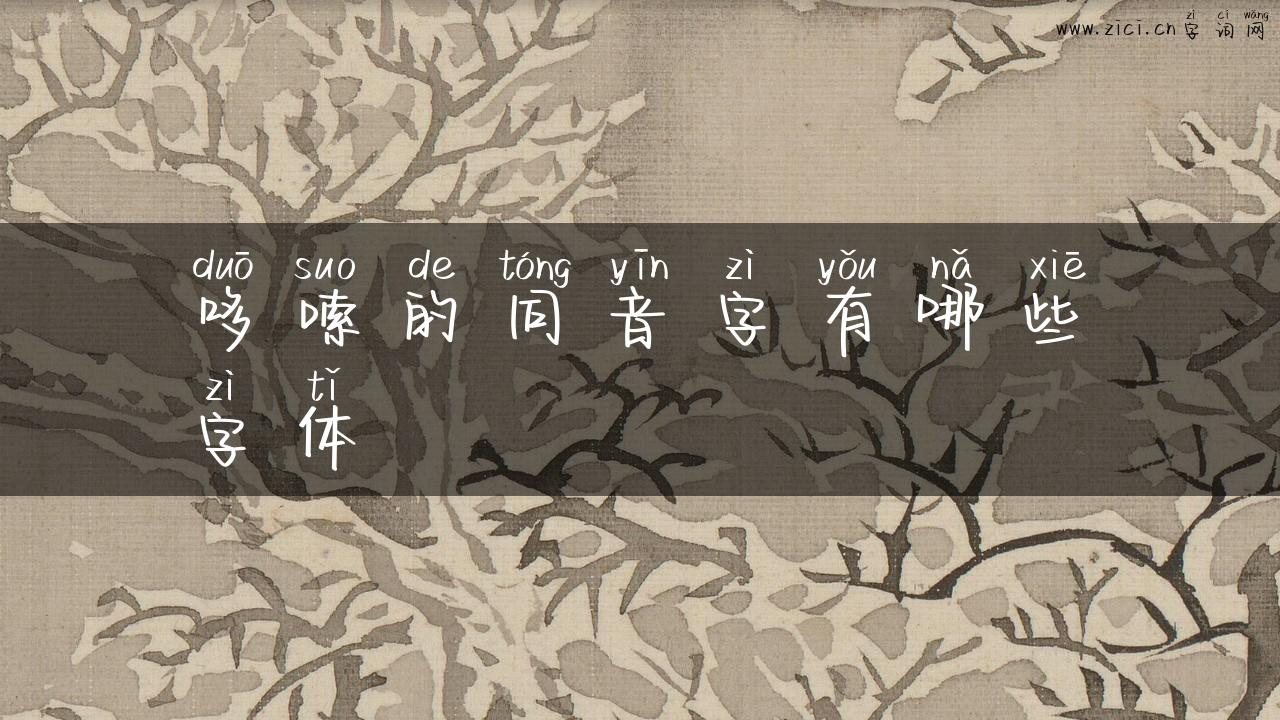 zì cí wǎng
www.zici.cn字词网
duō suo de tóng yīn zì yǒu nǎ xiē
哆嗦的同音字有哪些
zì tǐ
字体